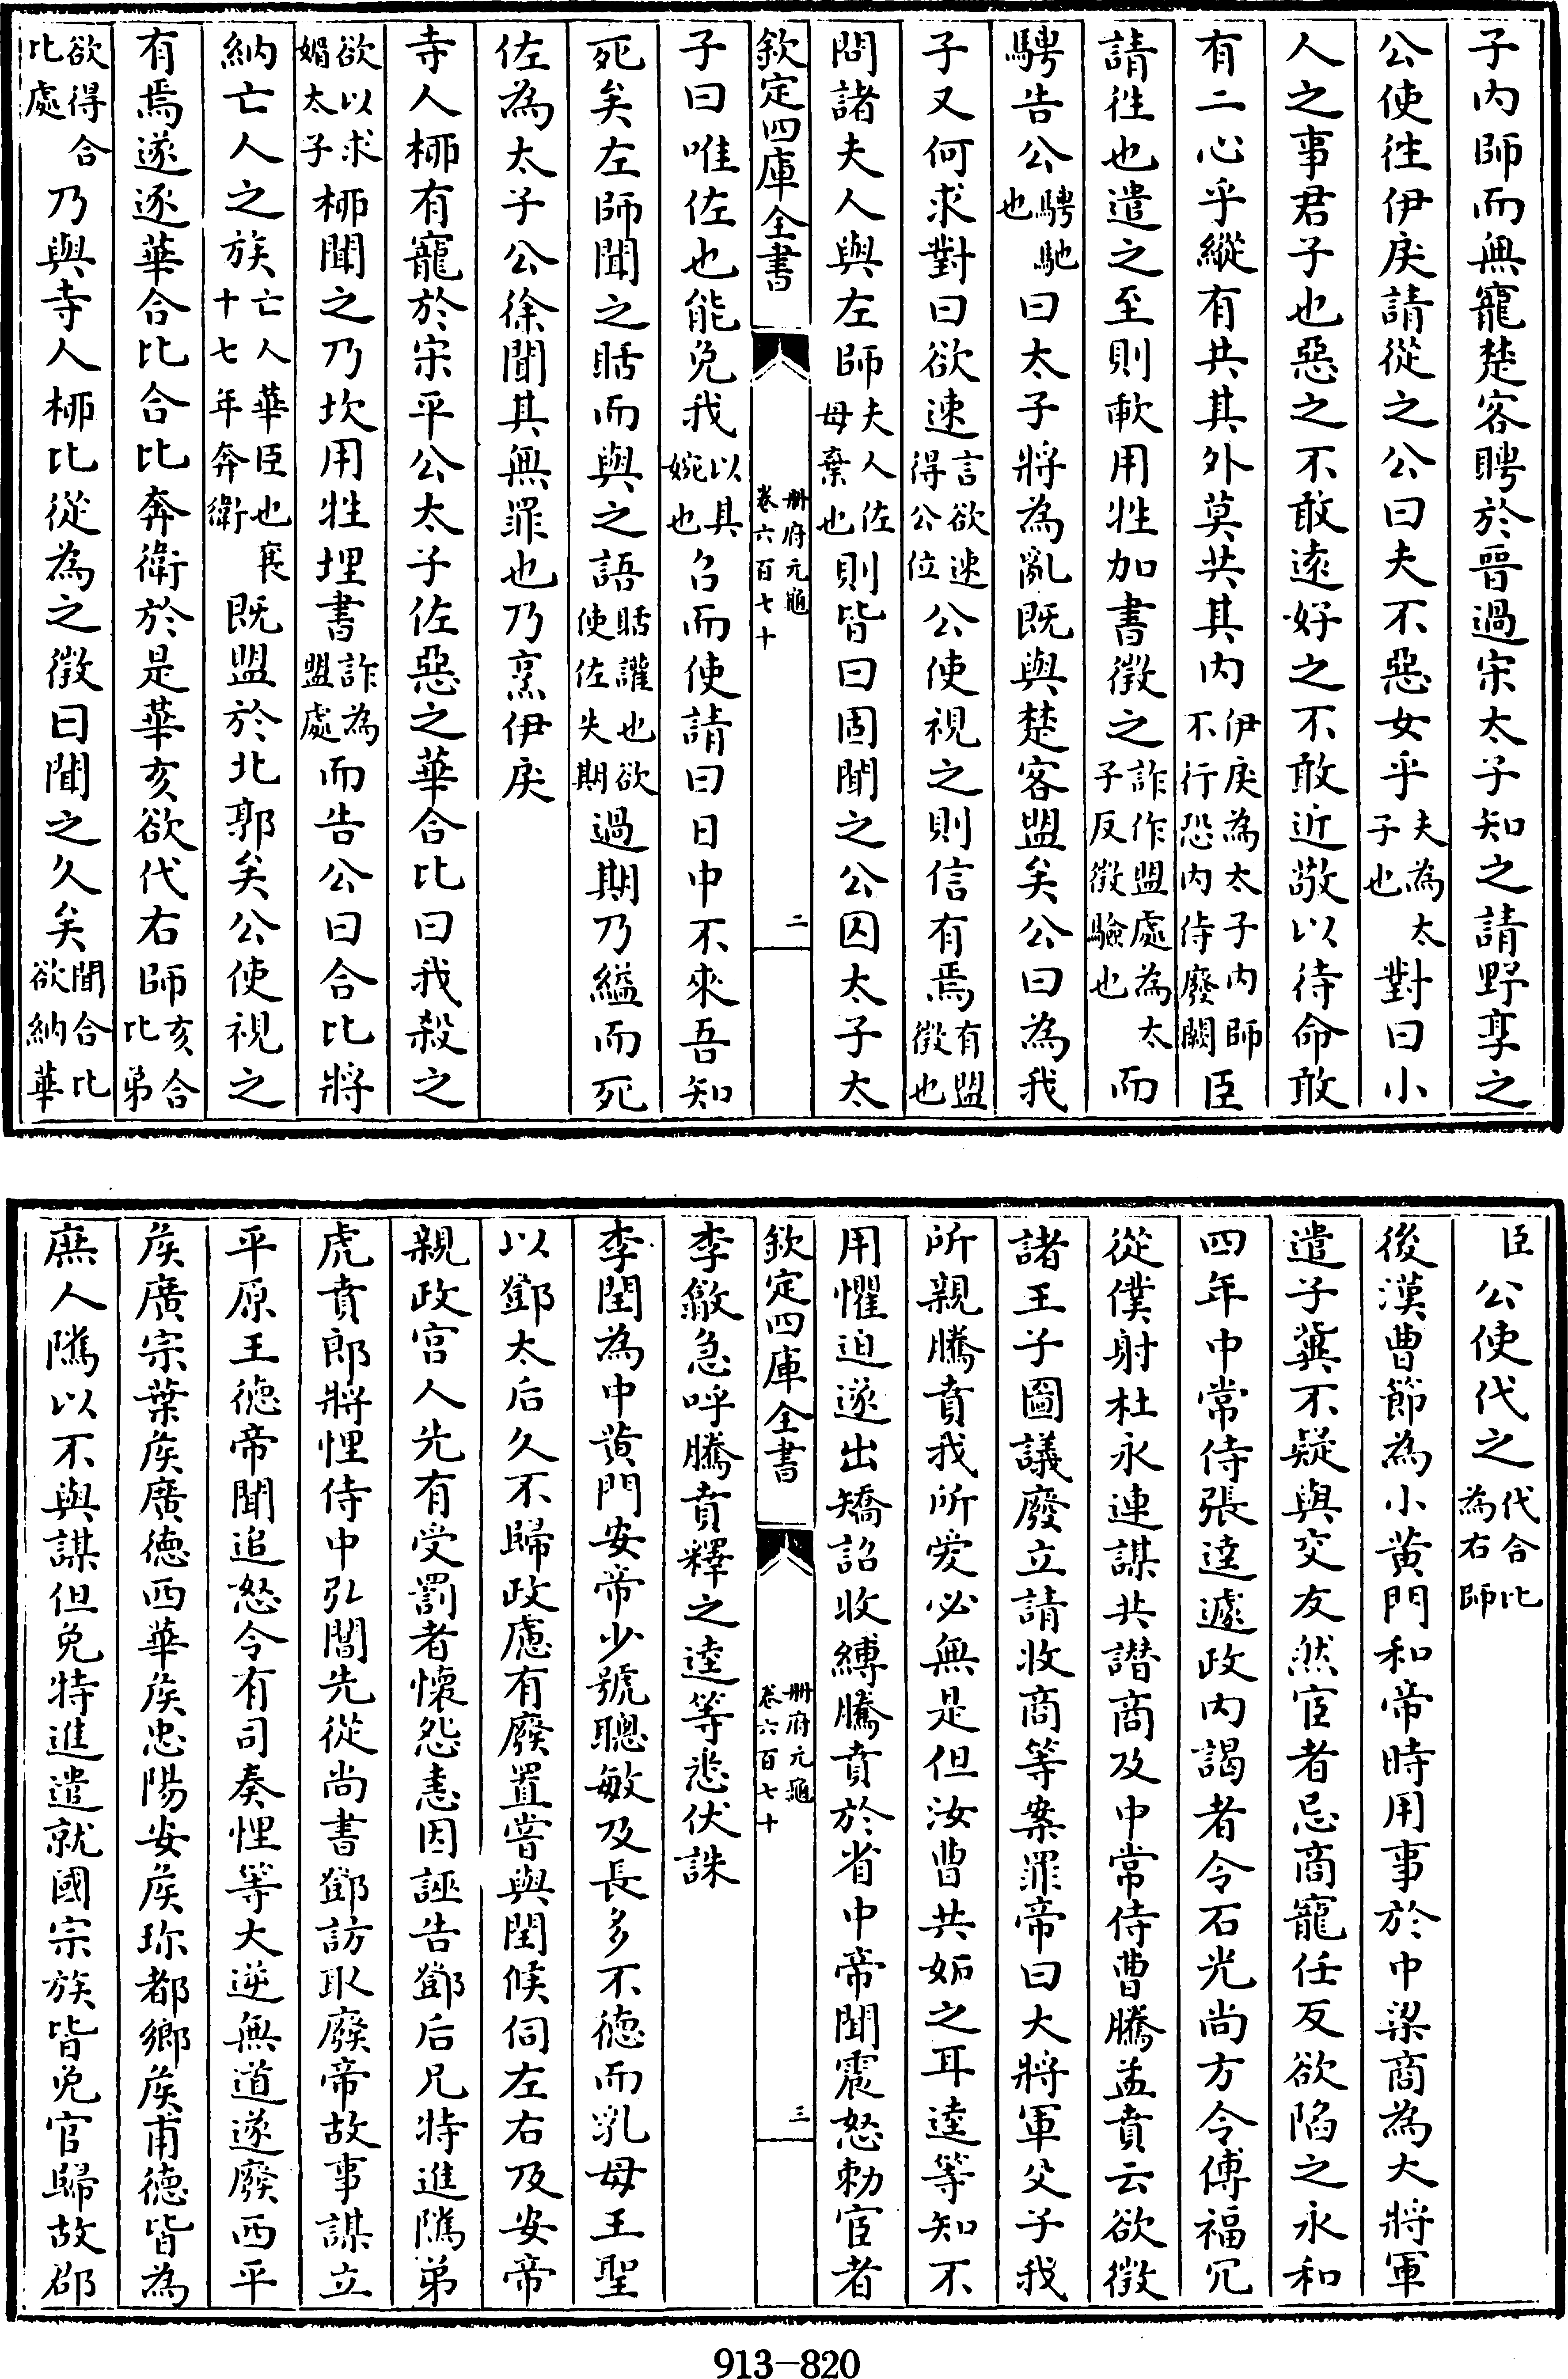 子内師而無寵楚客聘於晉過宋太子知之請野享之
公使往伊戾請從之公曰夫不惡女乎夫為太子也對曰小
人之事君子也惡之不敢逺好之不敢近敬以待命敢
有二心乎縱有共其外莫共其内伊戾為太子内師不行恐内侍廢闕臣
請徃也遣之至則㰱用牲加書徵之詐作盟處為太子反徵驗也而
騁告公騁馳也曰太子將為亂既與楚客盟矣公曰為我
子又何求對曰欲速言欲速得公位公使視之則信有焉有盟徵也
問諸夫人與左師夫人佐母棄也則皆曰固聞之公囚太子太
欽定四庫全書
册府元龜
卷六百七十
二
子曰唯佐也能免我以其婉也召而使請曰日中不來吾知
死矣左師聞之聒而與之語聒讙也欲使佐失期過期乃縊而死
佐為太子公徐聞其無罪也乃烹伊戾
寺人柳有寵於宋平公太子佐惡之華合比曰我殺之
欲以求媚太子栁聞之乃坎用牲埋書詐為盟處而告公曰合比將
納亡人之族亡人華臣也襄十七年奔衛既盟於北郭矣公使視之
有焉遂逐華合比合比奔衛於是華亥欲代右師亥合比弟
欲得合比處乃與寺人栁比從為之徵曰聞之久矣聞合比欲納華
臣公使代之代合比為右師
後漢曹節為小黄門和帝時用事於中梁商為大將軍
遣子冀不疑與交友然宦者忌商寵任反欲陷之永和
四年中常侍張逵蘧政内謁者令石光尚方令傅福冗
從僕射杜永連謀共譖商及中常侍曹騰孟賁云欲徵
諸王子圖議廢立請收商等案罪帝曰大將軍父子我
所親騰賁我所愛必無是但汝曹共妬之耳逵等知不
用懼迫遂出矯詔收縛騰賁於省中帝聞震怒勑宦者
欽定四庫全書
册府元龜
卷六百七十
三
李歙急呼騰賁釋之逵等悉伏誅
李閏為中黄門安帝少號聰敏及長多不德而乳母王聖
以鄧太后久不歸政慮有廢置嘗與閏候伺左右及安帝
親政宫人先有受罰者懷怨恚因誣告鄧后兄特進隲弟
虎賁郎將悝侍中弘閶先從尚書鄧訪取廢帝故事謀立
平原王德帝聞追怒令有司奏悝等大逆無道遂廢西平
侯廣宗葉侯廣德西華侯忠陽安侯珍都鄉侯甫德皆為
庶人隲以不與謀但免特進遣就國宗族皆免官歸故郡
913-820